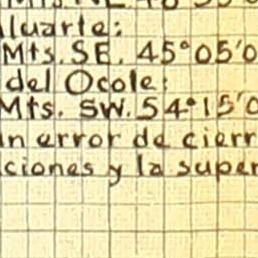 luarte:
Mts. SE. 45°05'0
del Ocole:
Mts. SW. 54°15'0
n error de cierr
ciones y la super